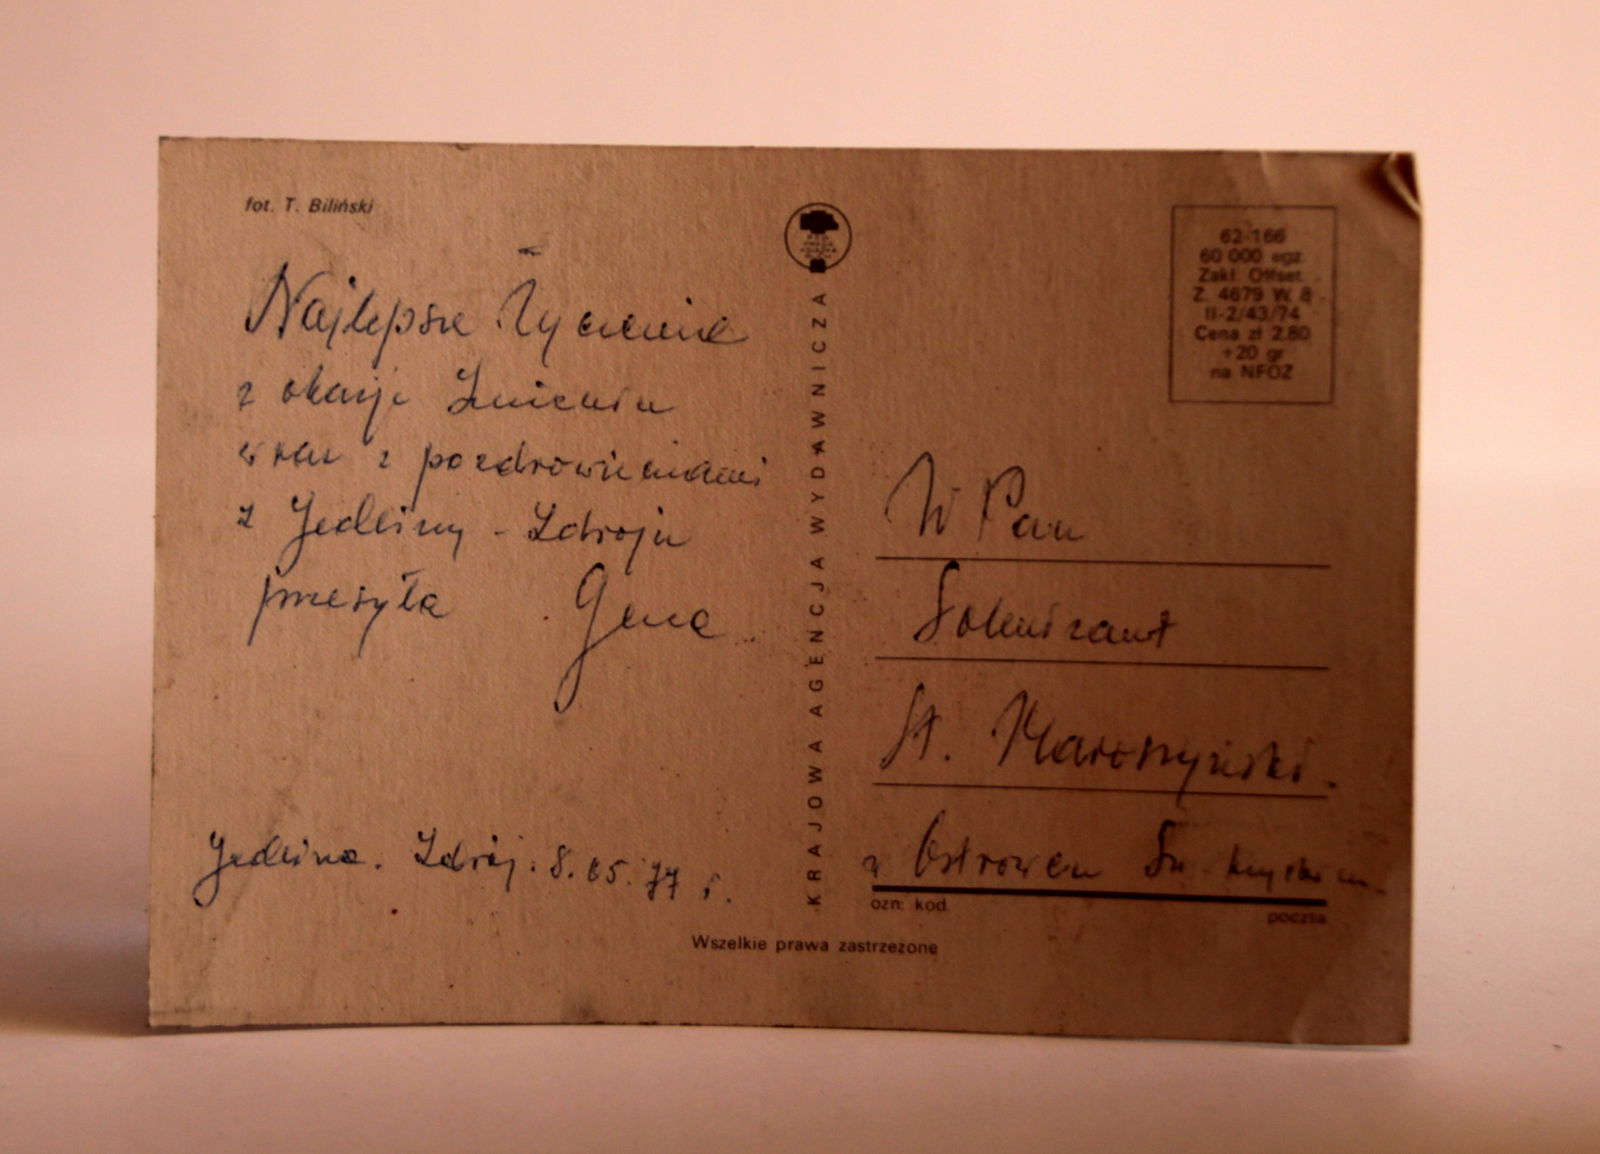 fot. T. Biliński
Najlepsze Życzenia
z okazji Imienin
wraz z pozdrowieniami
z Jedliny - Zdroju
przesyła Gena
Jedlina. Zdrój. 8.05.77 r.
KRAJOWA AGENCJA WYDAWNICZA
Wszelkie prawa zastrzeżone
62-166
60 000 egz.
Zakł. Offset.
Z. 4679 W. 8
II-2/43/74
Cena zł 2.80
+20 gr
na NFOZ
W Pan
Solenizant
St.
z Ostrowca Św
ozn. kod.
poczta